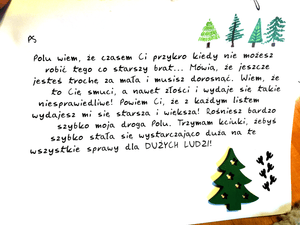 PS
Polu wiem, że czasem Ci przykro kiedy nie możesz
robić tego co starszy brat... Mówią, że jeszcze
jesteś trochę za mała i musisz dorosnąć. Wiem, że
to Cię smuci, a nawet złości i wydaje się takie
niesprawiedliwe! Powiem Ci, że z każdym listem
wydajesz mi się starsza i większa! Rośniesz bardzo
szybko moja droga Polu. Trzymam kciuki, żebyś
szybko stała się wystarczająco duża na te
wszystkie sprawy dla DUŻYCH LUDZI!